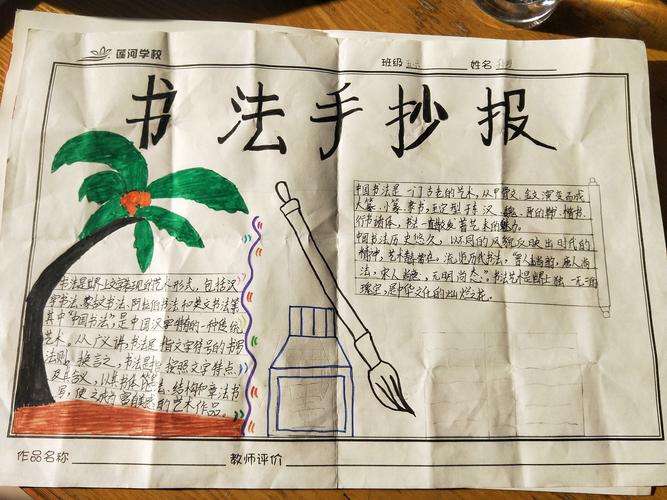 莲河学校
班级
姓名
书法手抄报
中国书法是一门古老的艺术，从甲骨文、金文演变而成
大篆、小篆、隶书，至定型于东汉、魏、晋的草书、楷书、
行书诸体，书法一直散发着艺术的魅力。
中国书法历史悠久，以不同的风貌反映出时代的
精神，艺术青春常在。浏览历代书法，"晋人尚韵，唐人尚
法，宋人尚意，元明尚态"。书法艺术是独一无二的
瑰宝，是中华文化的灿烂之花。
书法是世界上文字表现的艺术形式，包括汉
字书法、蒙文书法、阿拉伯书法和英文书法等
其中"中国书法"，是中国汉字特有的一种传统
艺术。从广义讲，书法是指文字符号的书写
法则。换言之，书法是指按照文字特点
及其含义，以其书体笔法、结构和章法书
写，使之成为富有美感的艺术作品。
作品名称
教师评价